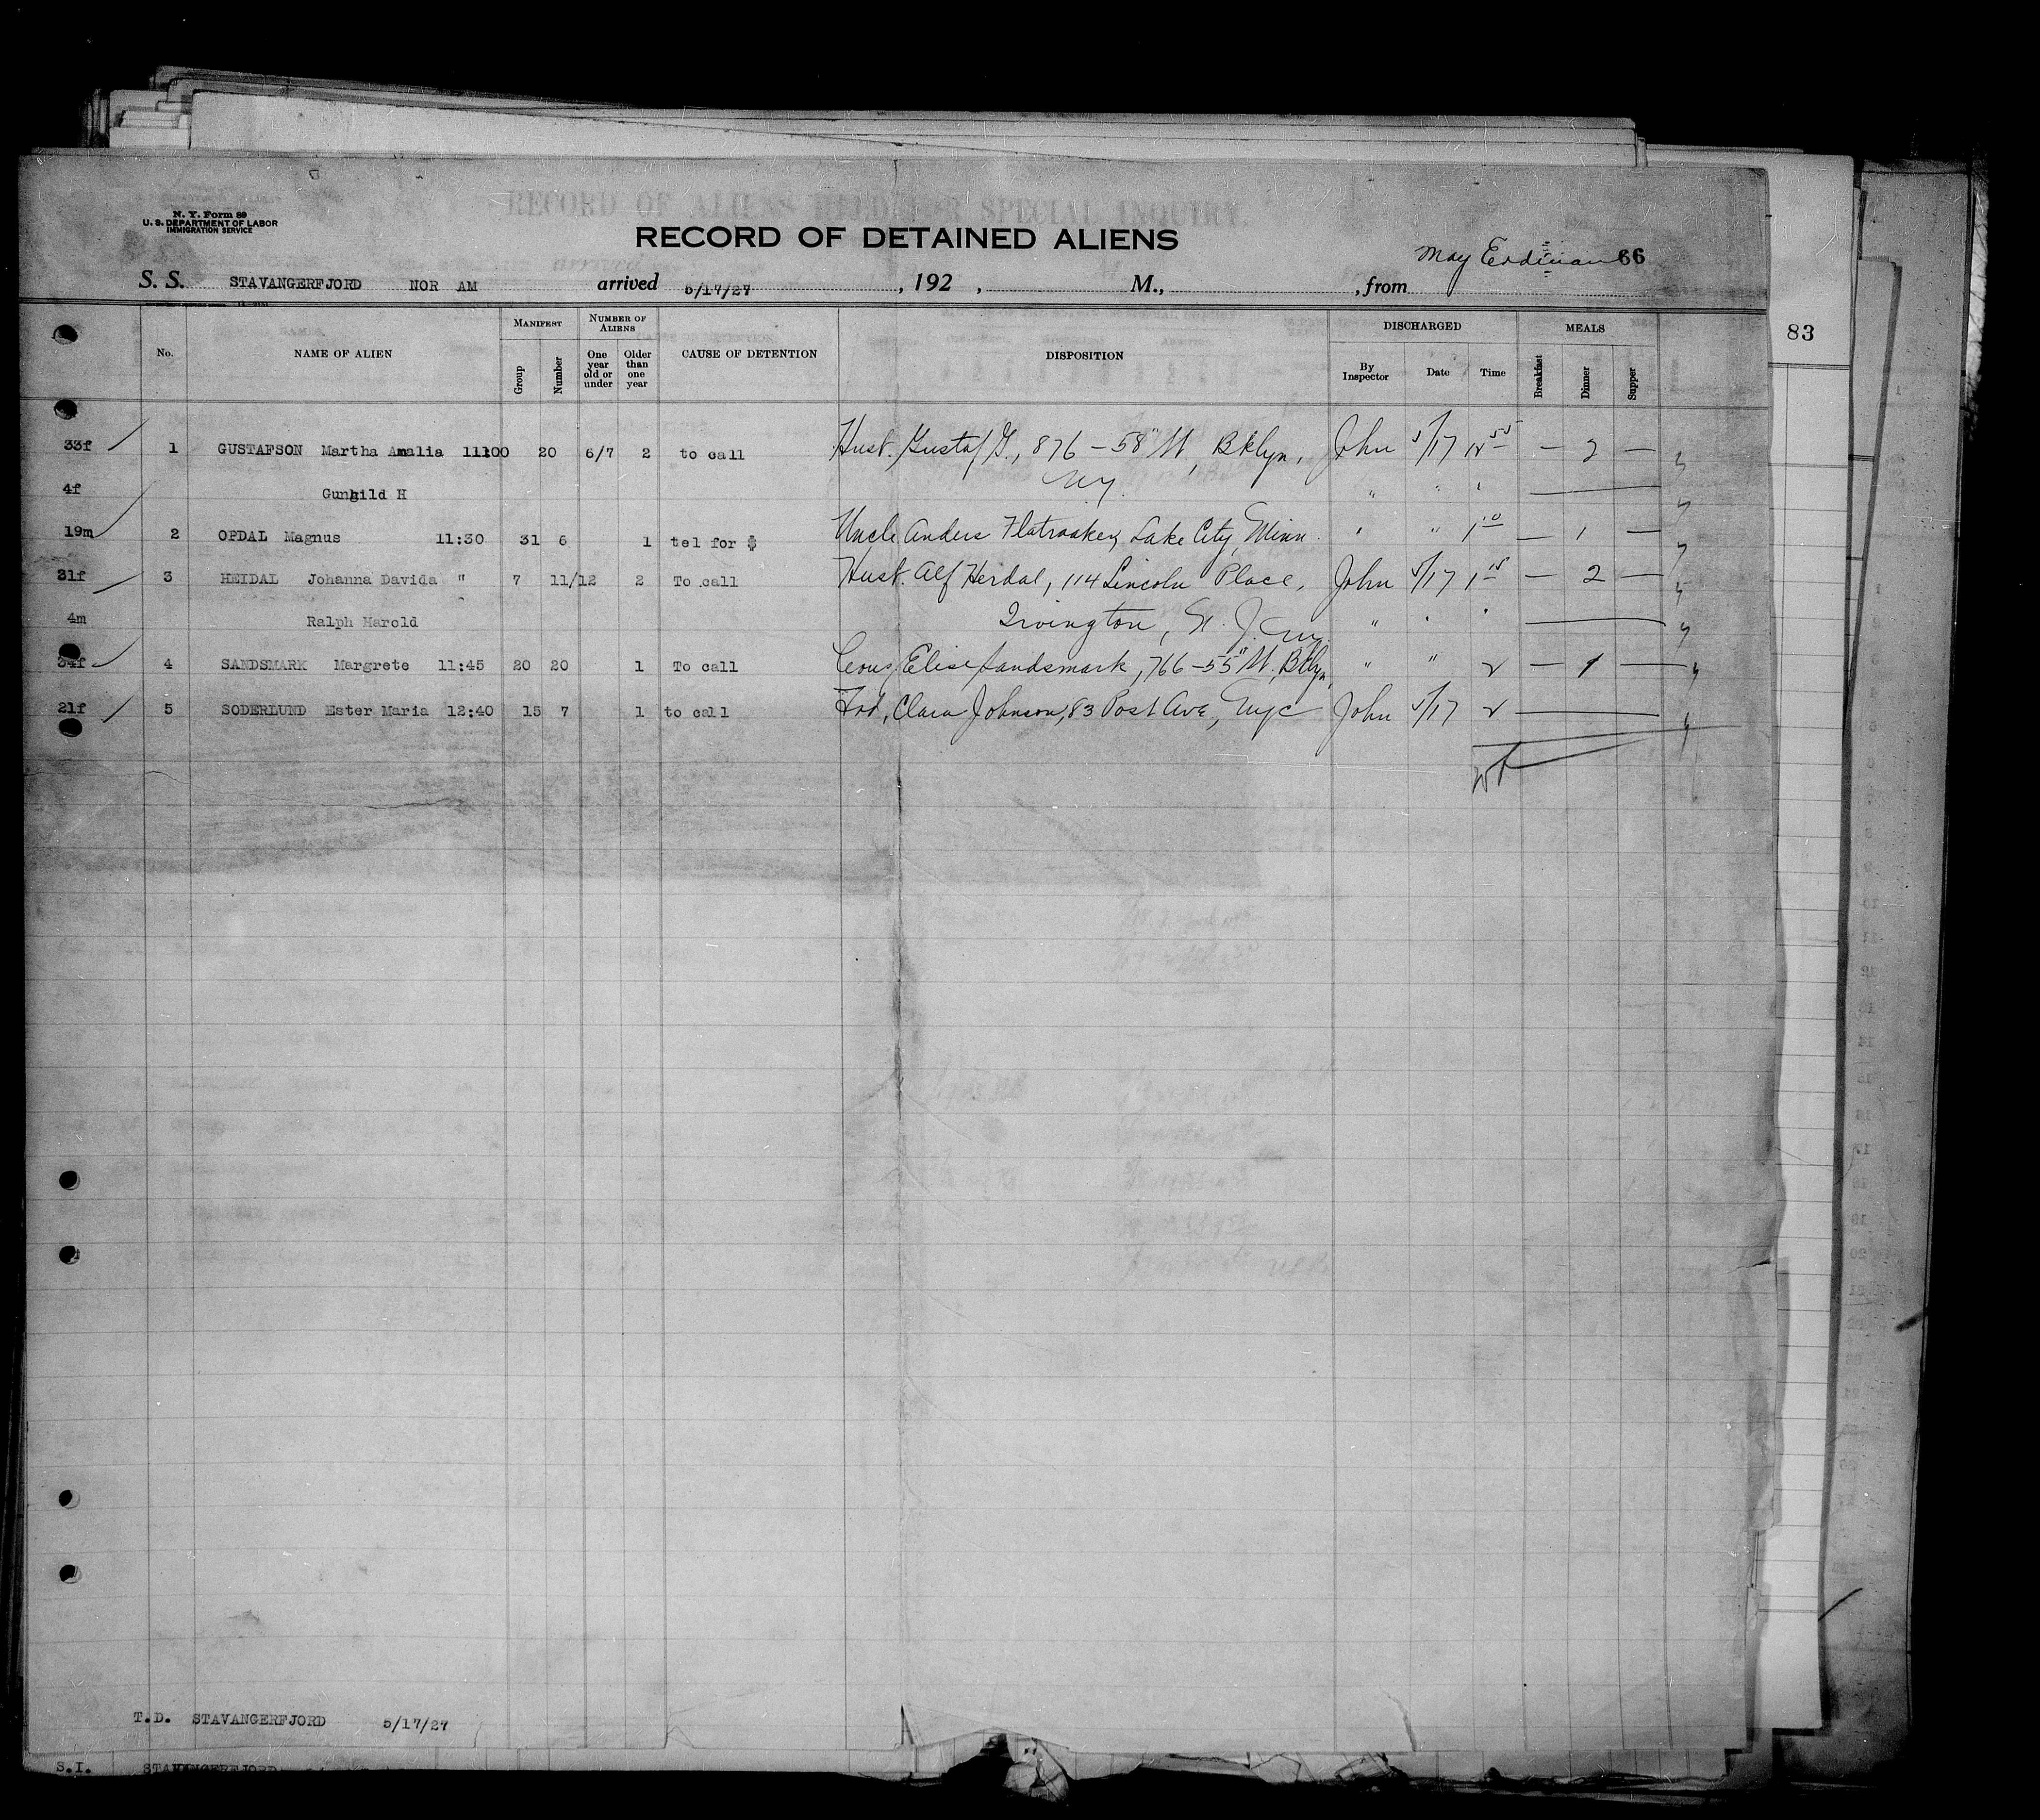 N. Y. Form 89
U. S. DEPARTMENT OF LABOR
IMMIGRATION SERVICE
RECORD OF ALIENS HELD FOR SPECIAL INQUIRY.
RECORD OF DETAINED ALIENS
May 66
S. S. STAVANGERFJORD NOR AM arrived 5/17/27, 192 , M., , from
83
No. NAME OF ALIEN MANIFEST Group Number NUMBER OF ALIENS One year old or under Older than one year CAUSE OF DETENTION DISPOSITION DISCHARGED By Inspector Date Time MEALS Breakfast Dinner Supper
33f 1 GUSTAFSON Martha Amalia 11100 20 6/7 2 to call Husb. Gustaf G., 876 - 58" St, Bklyn, John 5/17 12 55 — 2 —
4f Gunhild H NY. " " "
19m 2 OPDAL Magnus 11:30 31 6 1 tel for $ Uncle Anders Lake City, Minn. " " 1 10 — 1 —
31f 3 HEIDAL Johanna Davida " 7 11/12 2 To call Husb. Alf Herdal, 114 Lincoln Place, John 5/17 1 15 — 2 —
4m Ralph Harold Irvington, N. J. " " "
34f 4 SANDSMARK Margrete 11:45 20 20 1 To call Cous Elise Sandsmark, 766-55" St. Bklyn, " " 2 — 1 —
21f 5 SODERLUND Ester Maria 12:40 15 7 1 to call Frd, Clara Johnson, 83 Post Ave, NYC John 5/17 2
T.D. STAVANGERFJORD 5/17/27
S.I. STAVANGERFJORD